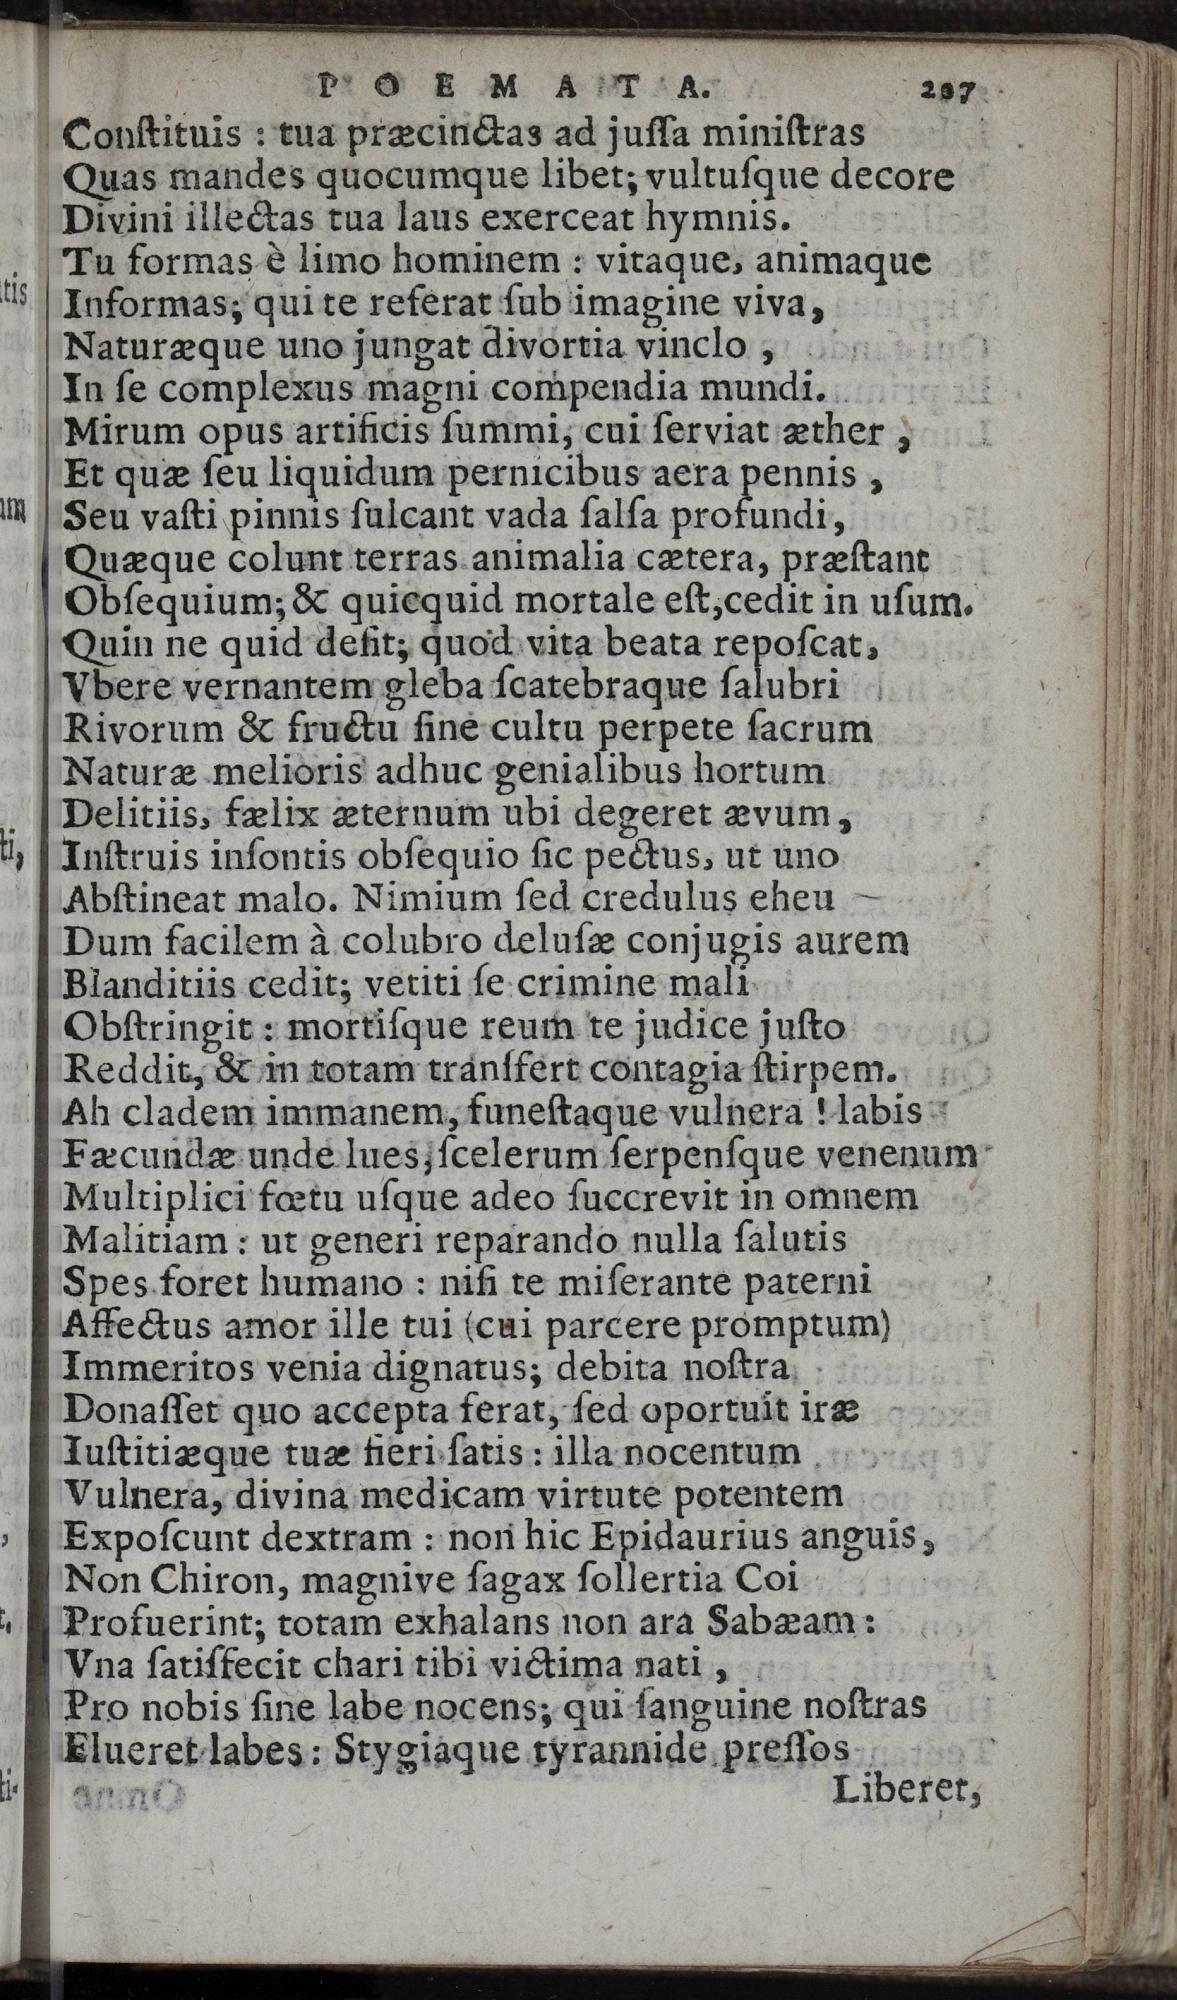 POEMATA. 207
Conſtituis : tua præcinctas ad juſſa miniſtras
Quas mandes quocumque libet; vultuſque decore
Divini illectas tua laus exerceat hymnis.
Tu formas è limo hominem : vitaque, animaque
Informas; qui te referat ſub imagine viva,
Naturæque uno jungat divortia vinclo ,
In ſe complexus magni compendia mundi.
Mirum opus artificis ſummi, cui ſerviat æther ,
Et quæ ſeu liquidum pernicibus aera pennis ,
Seu vaſti pinnis ſulcant vada ſalſa profundi,
Quæque colunt terras animalia cætera, præſtant
Obſequium; & quicquid mortale eſt, cedit in uſum.
Quin ne quid deſit; quod vita beata repoſcat,
Vbere vernantem gleba ſcatebraque ſalubri
Rivorum & fructu ſine cultu perpete ſacrum
Naturæ melioris adhuc genialibus hortum
Delitiis, fælix æternum ubi degeret ævum,
Inſtruis inſontis obſequio ſic pectus, ut uno
Abſtineat malo. Nimium ſed credulus eheu
Dum facilem à colubro deluſæ conjugis aurem
Blanditiis cedit; vetiti ſe crimine mali
Obſtringit : mortiſque reum te judice juſto
Reddit, & in totam tranſfert contagia ſtirpem.
Ah cladem immanem, funeſtaque vulnera ! labis
Fæcundæ unde lues, ſcelerum ſerpenſque venenum
Multiplici fœtu uſque adeo ſuccrevit in omnem
Malitiam : ut generi reparando nulla ſalutis
Spes foret humano : niſi te miſerante paterni
Affectus amor ille tui (cui parcere promptum)
Immeritos venia dignatus; debita noſtra
Donaſſet quo accepta ferat, ſed oportuit iræ
Iuſtitiæque tuæ fieri ſatis : illa nocentum
Vulnera, divina medicam virtute potentem
Expoſcunt dextram : non hic Epidaurius anguis,
Non Chiron, magnive ſagax ſollertia Coi
Profuerint; totam exhalans non ara Sabæam :
Vna ſatiſfecit chari tibi victima nati ,
Pro nobis ſine labe nocens; qui ſanguine noſtras
Elueret labes : Stygiaque tyrannide preſſos
Liberet,